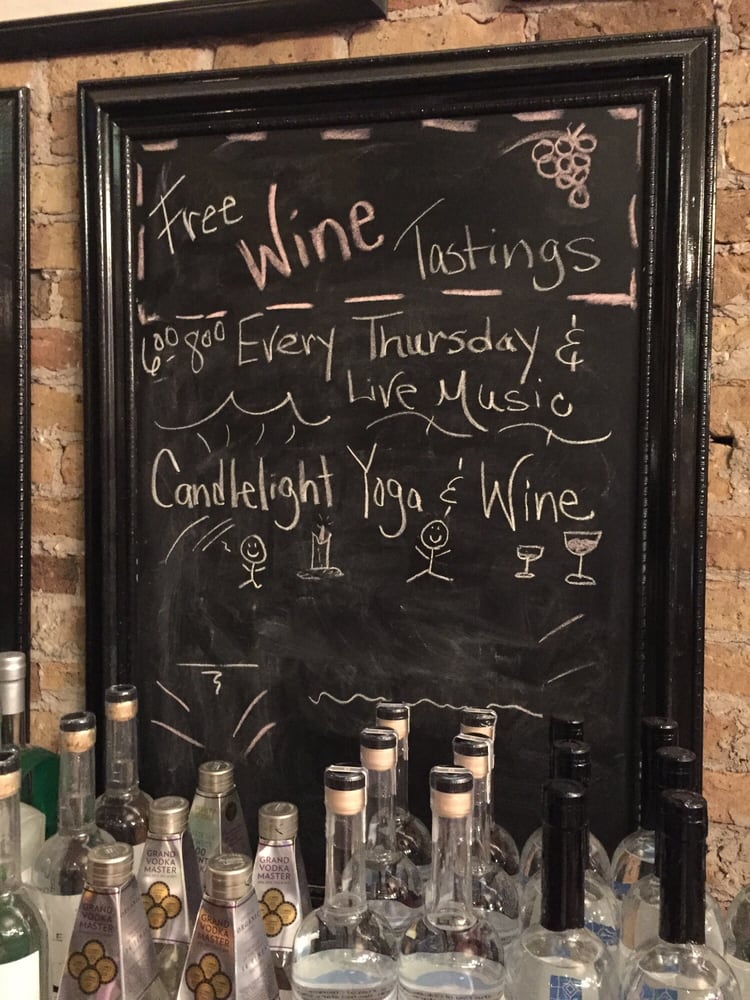 Free Wine Tastings
6:00-8:00 Every Thursday &
Live Music
Candlelight Yoga & Wine
GRAND
VODKA
MASTER
GRAND
VODKA
MASTER
GRAND
VODKA
MASTER
GRAND
VODKA
MASTER